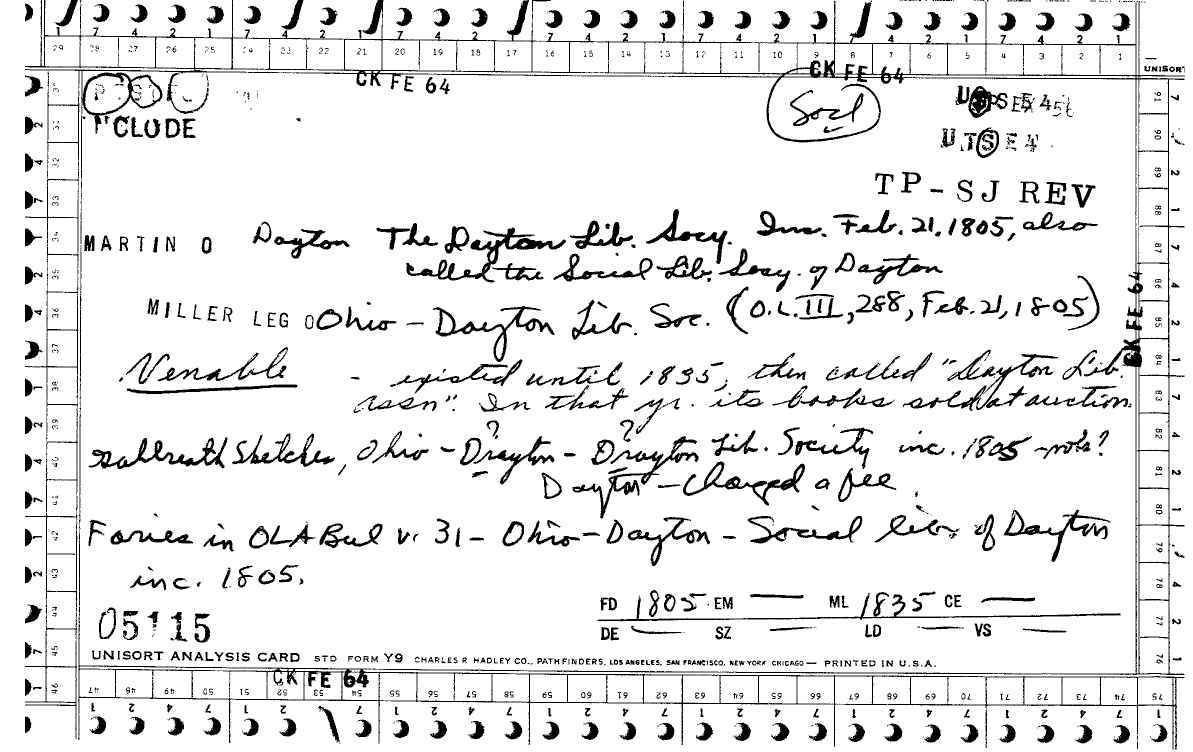 7 4 2 1 7 4 2 1 7 4 2 1 7 4 2 1 7 4 2 1 7 4 2 1 7 4 2 1
29 28 27 26 25 24 23 22 21 20 19 18 17 16 15 14 13 12 11 10 9 8 7 6 5 4 3 2 1
UNISORT
CK FE 64
CK FE 64
Socl
"CLODE
UTSE4
TP-SJ REV
MARTIN O Dayton The Dayton Lib. Socy. Inc. Feb. 21, 1805, also
called the Social Lib. Socy. of Dayton
MILLER LEG O Ohio - Dayton Lib. Soc. (O.L. III, 288, Feb. 21, 1805)
CK FE 64
Venable - existed until 1835, then called "Dayton Lib.
Assn". In that yr. its books sold at auction.
? ?
Galbreath Sketches, Ohio - Drayton - Drayton Lib. Society inc. 1805 - note?
Dayton - Charged a fee.
Faries in OLA Bul v. 31 - Ohio - Dayton - Social lib. of Dayton
inc. 1805.
FD 1805 EM — ML 1835 CE —
DE — SZ — LD — VS —
05115
UNISORT ANALYSIS CARD STD FORM Y9 CHARLES R HADLEY CO., PATHFINDERS, LOS ANGELES, SAN FRANCISCO, NEW YORK CHICAGO — PRINTED IN U.S.A.
CK FE 64
47 48 49 50 51 52 53 54 55 56 57 58 59 60 61 62 63 64 65 66 67 68 69 70 71 72 73 74 75